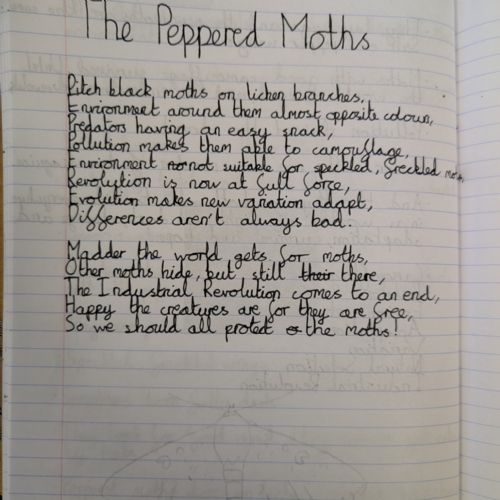 The Peppered Moths
Pitch black moths on lichen branches,
Environment around them almost opposite colour,
Predators having an easy snack,
Pollution makes them able to camouflage,
Environment not suitable for speckled, freckled moths
Revolution is now at full force,
Evolution makes new variation adapt,
Differences aren't always bad.
Madder the world gets for moths,
Other moths hide, but still their there,
The Industrial Revolution comes to an end,
Happy the creatures are for they are free,
So we should all protect the moths!